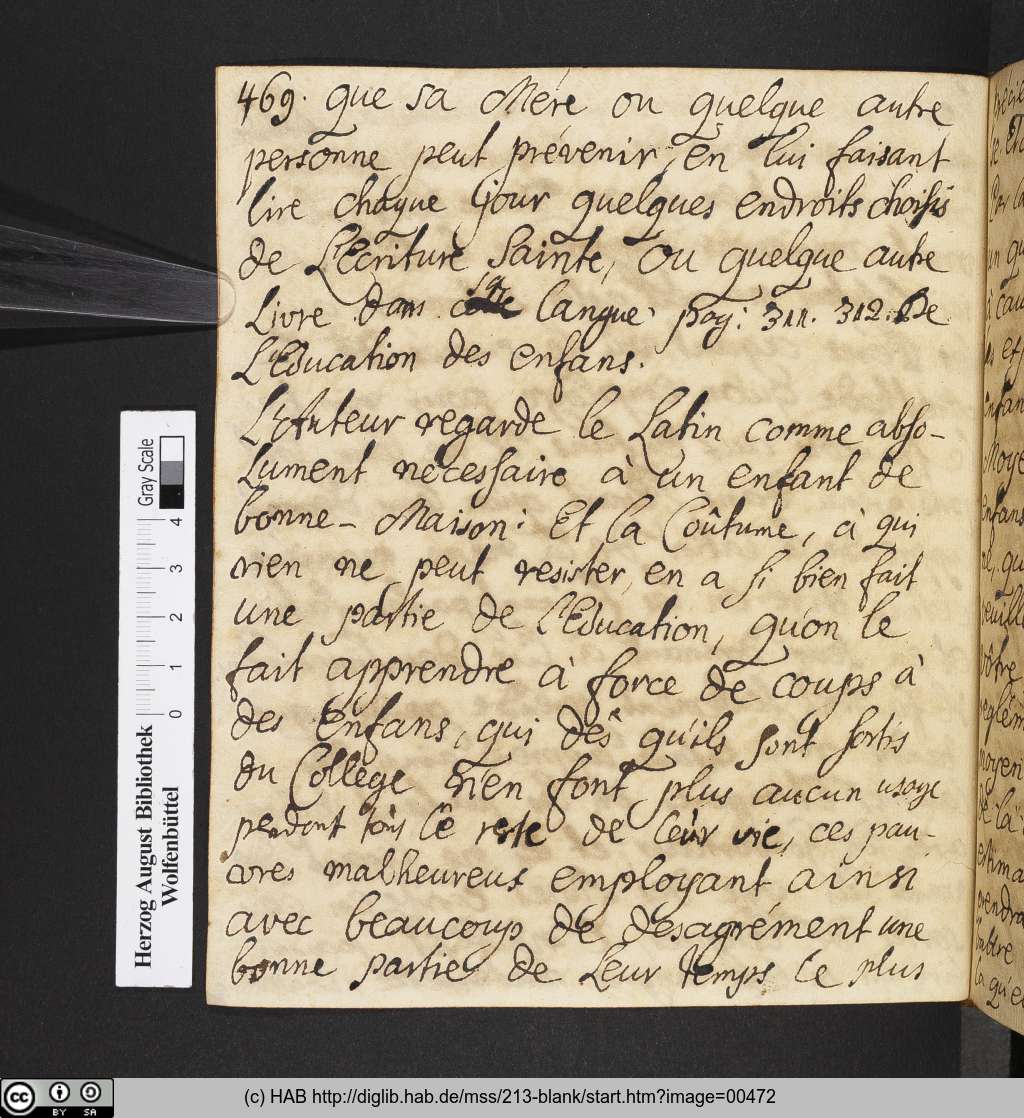 469. que sa Mére ou quelque autre
personne peut prévenir, en lui faisant
lire chaque jour quelques endroits choisis
de L'Ecriture Sainte, ou quelque autre
Livre dans langue. pag: 311. 312. De
L'Education des enfans.
L'Auteur regarde le Latin comme abso-
Lument necessaire à un enfant de
bonne-Maison: Et la Coûtume, à qui
rien ne peut resister, en a si bien fait
une partie de l'Education, qu'on le
fait apprendre à force de coups à
des enfans, qui dés qu'ils sont sortis
du Collège n'en font plus aucun usage
pendant tout le reste de leur vie, ces pau-
vres malheureux employant ainsi
avec beaucoup de desagrément une
bonne partie de Leur temps le plus
Herzog August Bibliothek
Wolfenbüttel
Gray Scale
0 1 2 3 4
cc BY SA
(c) HAB http://diglib.hab.de/mss/213-blank/start.htm?image=00472